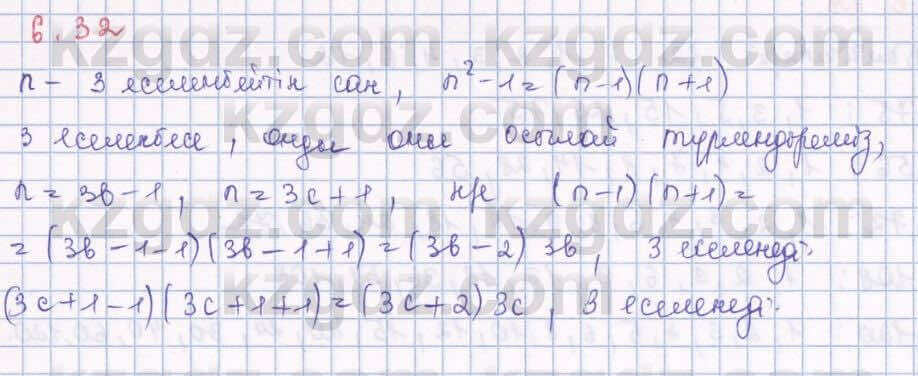 6.32
n - 3 еселенбейтін сан, n² - 1 = (n-1)(n+1)
3 еселенбесе, онды оны осылай түрлендіреміз,
n = 3b - 1, n = 3c + 1, (n-1)(n+1) =
= (3b - 1 - 1)(3b - 1 + 1) = (3b - 2) 3b, 3 еселенеді.
(3c + 1 - 1)(3c + 1 + 1) = (3c + 2) 3c, 3 еселенеді.